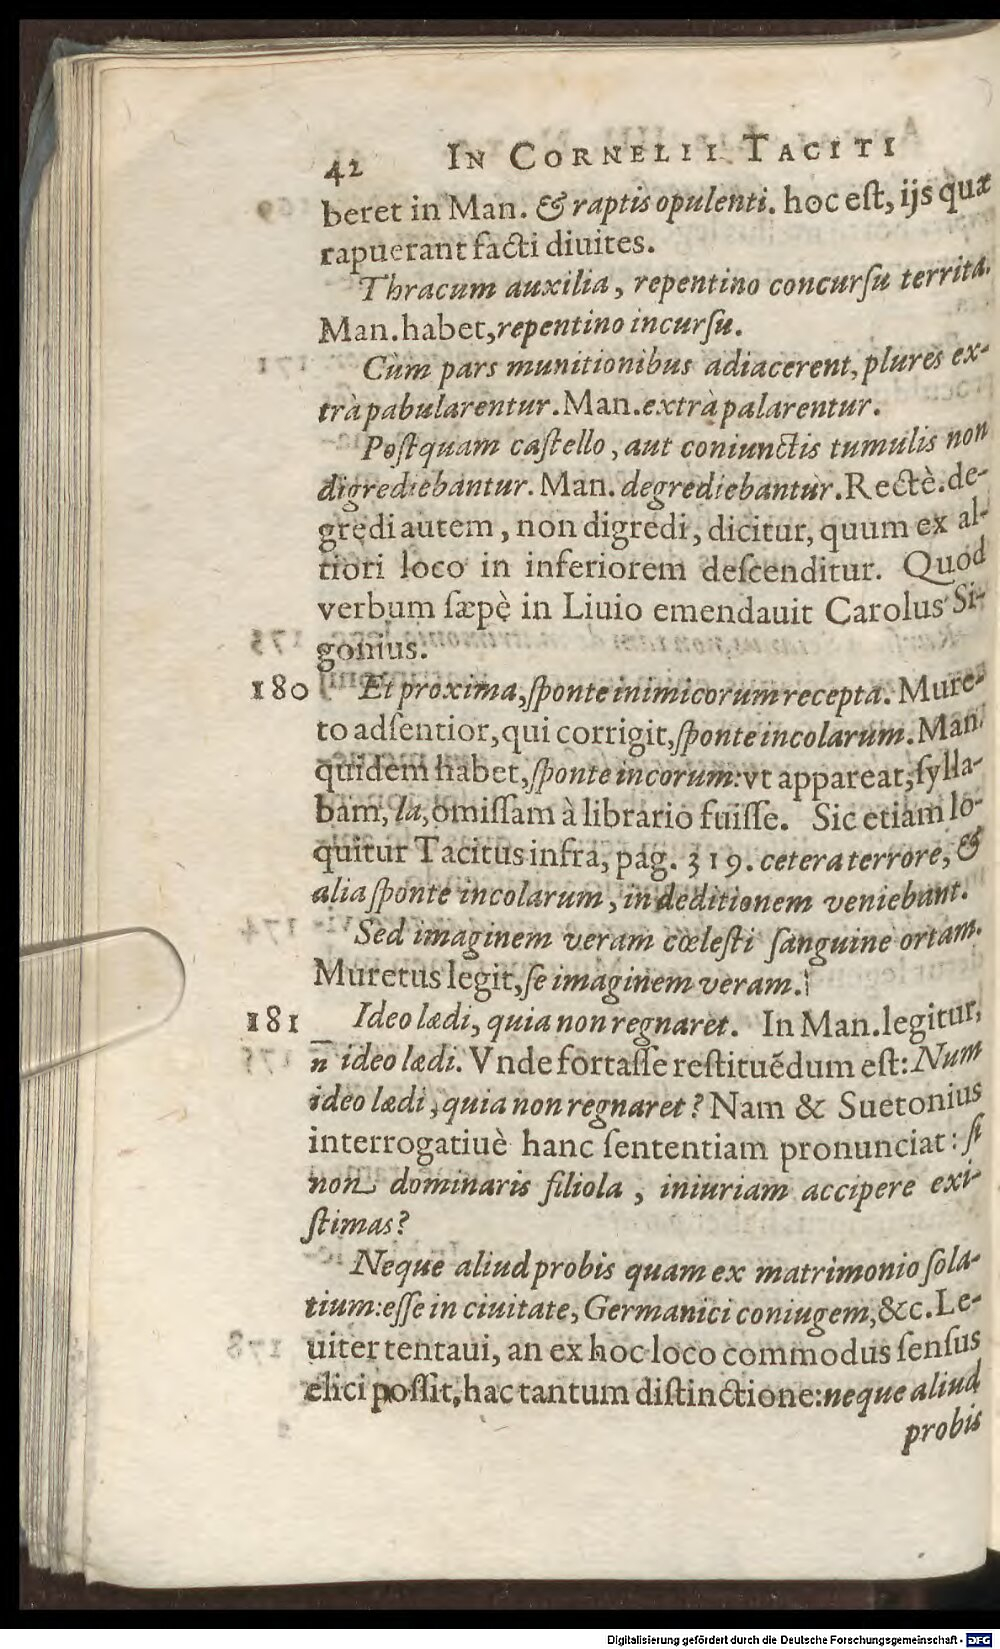 42 IN CORNELII TACITI
beret in Man. & raptis opulenti. hoc eſt, ijs quæ
rapuerant facti diuites.
Thracum auxilia, repentino concurſu territa.
Man. habet, repentino incurſu.
Cùm pars munitionibus adiacerent, plures ex-
trà pabularentur. Man. extrà palarentur.
Poſtquam caſtello, aut coniunctis tumulis non
digrediebantur. Man. degrediebantur. Rectè. de-
gredi autem, non digredi, dicitur, quum ex al-
tiori loco in inferiorem deſcenditur. Quod
verbum ſæpè in Liuio emendauit Carolus Si-
gonius.
180 Et proxima, ſponte inimicorum recepta. Mure-
to adſentior, qui corrigit, ſponte incolarum. Man.
quidem habet, ſponte incorum: vt appareat, ſylla-
bam, la, omiſſam à librario fuiſſe. Sic etiam lo-
quitur Tacitus infra, pag. 319. cetera terrore, &
alia ſponte incolarum, in deditionem veniebant.
Sed imaginem veram cœleſti ſanguine ortam.
Muretus legit, ſe imaginem veram.
181 Ideo lædi, quia non regnaret. In Man. legitur,
n̄ ideo lædi. Vnde fortaſſe reſtituẽdum eſt: Num
ideo lædi, quia non regnaret? Nam & Suetonius
interrogatiuè hanc ſententiam pronunciat: ſi
non dominaris filiola, iniuriam accipere exi-
ſtimas?
Neque aliud probis quam ex matrimonio ſola-
tium: eſſe in ciuitate, Germanici coniugem, &c. Le-
uiter tentaui, an ex hoc loco commodus ſenſus
elici poſſit, hac tantum diſtinctione: neque aliud
probis
Digitalisierung gefördert durch die Deutsche Forschungsgemeinschaft - DFG